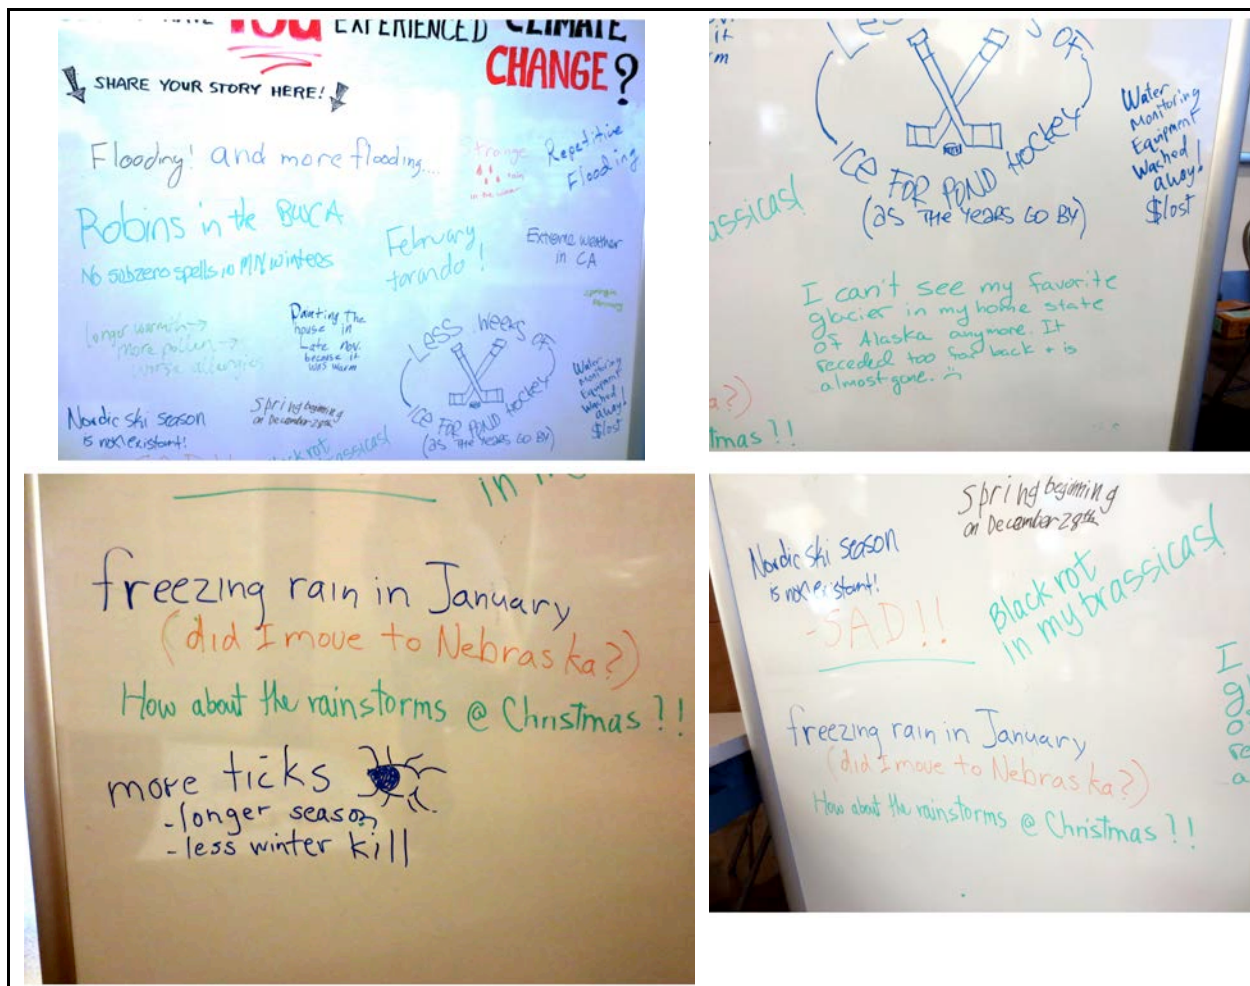 HAVE YOU EXPERIENCED CLIMATE
CHANGE?
SHARE YOUR STORY HERE!
Flooding! and more flooding....
Strange
rain
in the winter
Repetitive
Flooding
Robins in the BWCA
No subzero spells in MN winters
February
torando!
Extreme weather
in CA
longer warmth →
more pollen →
worse allergies
Painting the
house in
Late Nov.
because it
was warm
LESS WEEKS OF
ICE FOR POND HOCKEY
(AS THE YEARS GO BY)
Water
Monitoring
Equipment
Washed
away!
$lost
Nordic ski season
is nonexistant!
Spring beginning
on December 28th
-SAD!!
Black rot
brassicas!
it
rm
LESS OF
ICE FOR POND HOCKEY
(AS THE YEARS GO BY)
Water
Monitoring
Equipment
Washed
away!
$lost
assicas!
I can't see my favorite
glacier in my home state
of Alaska anymore. It
receded too far back + is
almost gone.
a?)
tmas?!
in m
freezing rain in January
(did I move to Nebraska?)
How about the rainstorms @ Christmas?!
more ticks
-longer season
-less winter kill
Spring beginning
on December 28th
Nordic ski season
is nonexistant!
-SAD!!
Black rot
in my brassicas!
I
gl
o
re
a
freezing rain in January
(did I move to Nebraska?)
How about the rainstorms @ Christmas?!